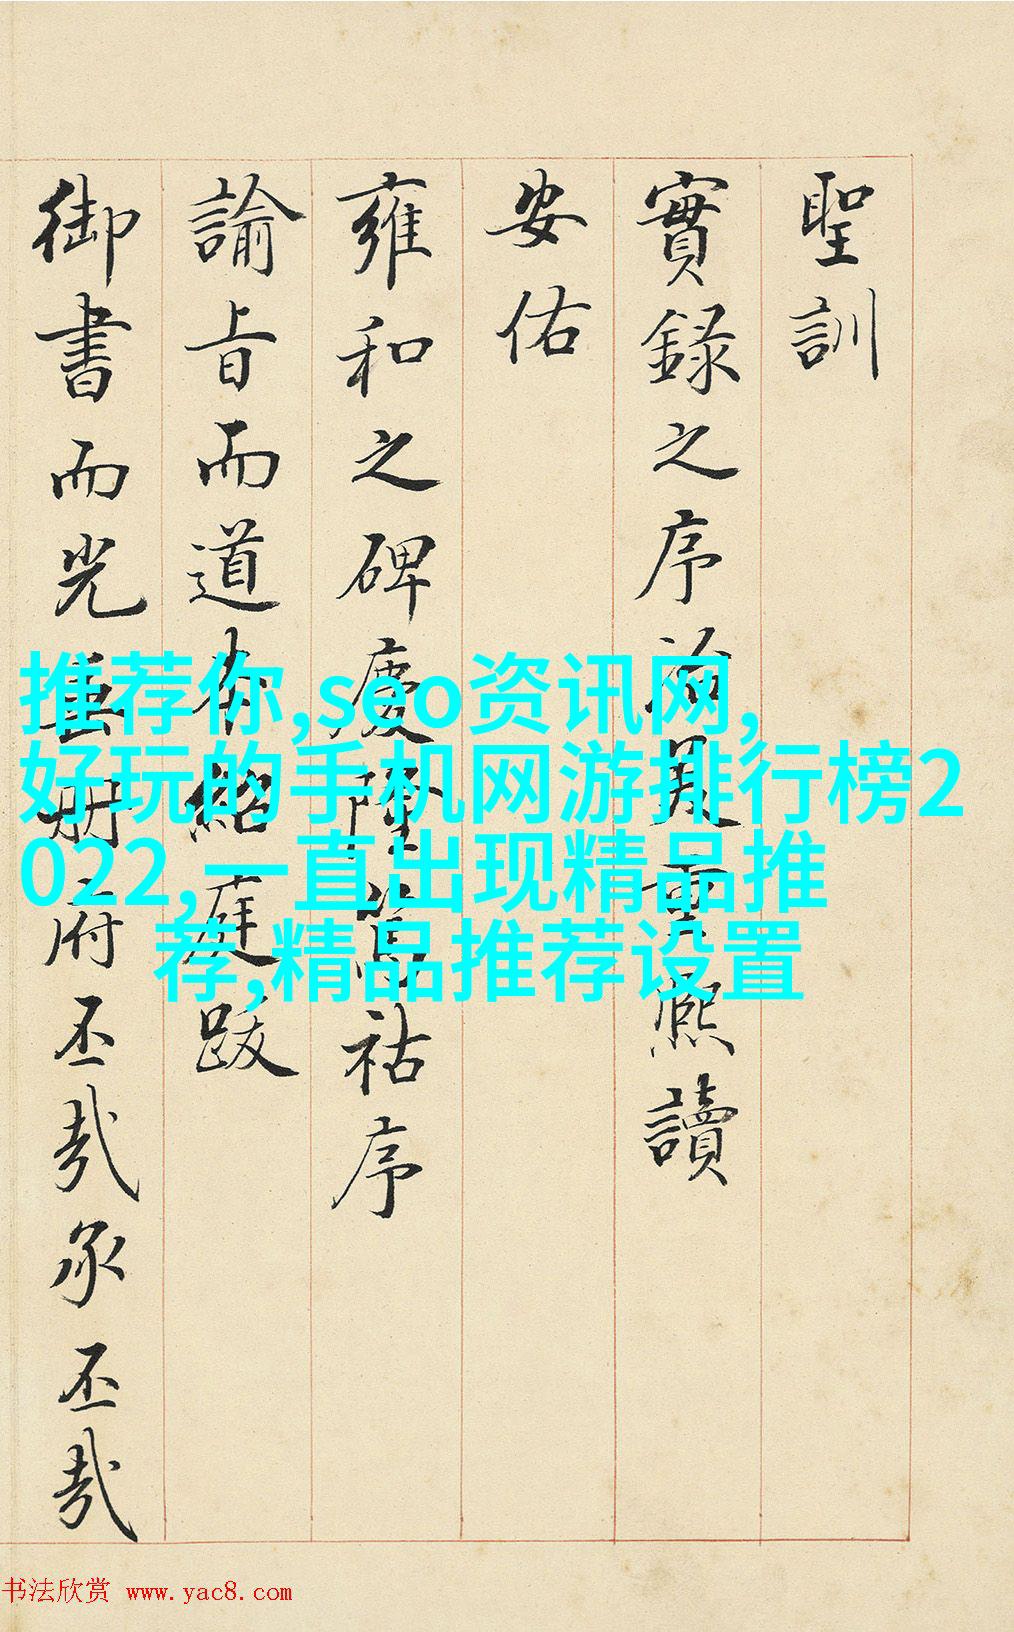 聖訓
實錄之序見熙讀
安佑
雍和之碑慶隆篤祜序
諭旨而道本紹庭跋
御書而光垂册府丕哉承丕哉
推荐你,seo资讯网,
好玩的手机网游排行榜2
022,一直出现精品推
荐,精品推荐设置
书法欣赏 www.yac8.com